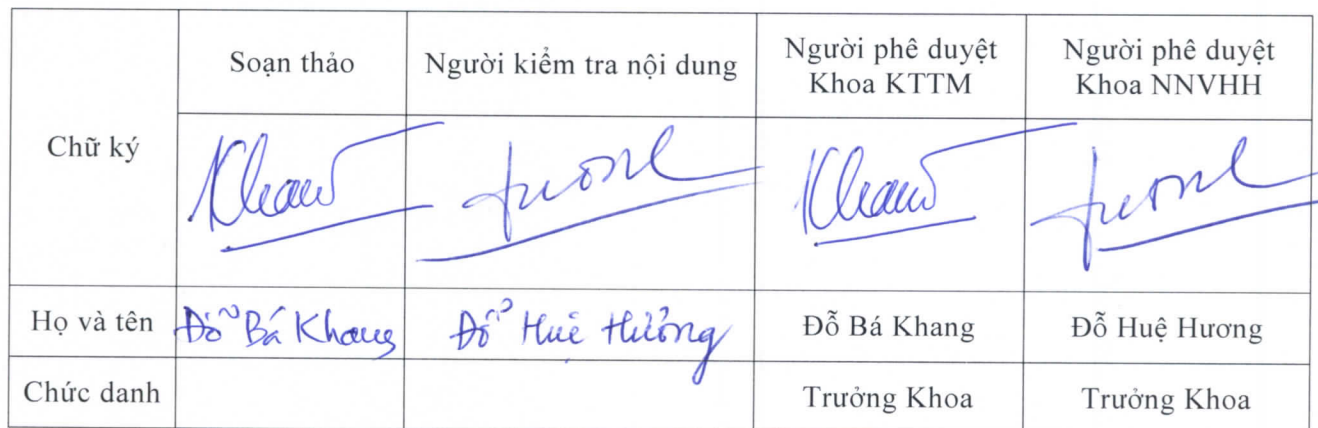 Soạn thảo
Người kiểm tra nội dung
Người phê duyệt
Khoa KTTM
Người phê duyệt
Khoa NNVHH
Chữ ký
Họ và tên
Đỗ Bá Khang
Đỗ Huệ Hương
Đỗ Bá Khang
Đỗ Huệ Hương
Chức danh
Trưởng Khoa
Trưởng Khoa